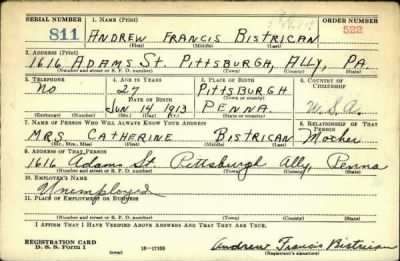 SERIAL NUMBER 1. NAME (Print) ORDER NUMBER
811 ANDREW FRANCIS BISTRICAN 522
(First) (Middle) (Last)
2. ADDRESS (Print)
1616 ADAMS ST. PITTSBURGH, ALLY, PA.
(Number and street or R. F. D. number) (Town) (County) (State)
3. TELEPHONE 4. AGE IN YEARS 5. PLACE OF BIRTH 6. COUNTRY OF CITIZENSHIP
NO 27 PITTSBURGH
DATE OF BIRTH (Town or county) U.S.A.
JUN 14 1913 PENNA.
(Exchange) (Number) (Mo.) (Day) (Yr.) (State or country)
7. NAME OF PERSON WHO WILL ALWAYS KNOW YOUR ADDRESS 8. RELATIONSHIP OF THAT PERSON
MRS. CATHERINE BISTRICAN Mother
(Mr., Mrs., Miss) (First) (Middle) (Last)
9. ADDRESS OF THAT PERSON
1616 Adams St. Pittsburgh Ally, Penna
(Number and street or R. F. D. number) (Town) (County) (State)
10. EMPLOYER'S NAME
Unemployed
11. PLACE OF EMPLOYMENT OR BUSINESS
(Number and street or R. F. D. number) (Town) (County) (State)
I AFFIRM THAT I HAVE VERIFIED ABOVE ANSWERS AND THAT THEY ARE TRUE.
REGISTRATION CARD
D. S. S. Form 1 (over) 16—17105 Andrew Francis Bistrican
(Registrant's signature)